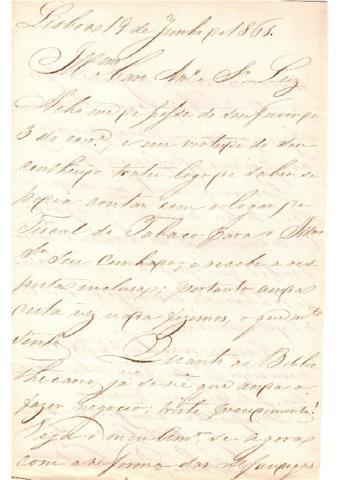 Lisboa 19 de Junho de 1865.
Illmo
e Caro Amo e Sr. Luz
Acho me de posse do seu favor de
3 do corre., e em virtude do seu
contheudo tratei logo de saber se
podia contar com o logar de
Fiscal do Tabaco para o Illmo
Sr. Seu Cunhado; e recebi a res-
posta inclusa; portanto ainda
esta vez nada fizemos, o que mto
sinto.
Quanto ao Biblio-
thecario, já se vê que anda a
fazer negocio; triste procedimento!
Veja o meu Amo. se agora
com a reforma das Alfandegas